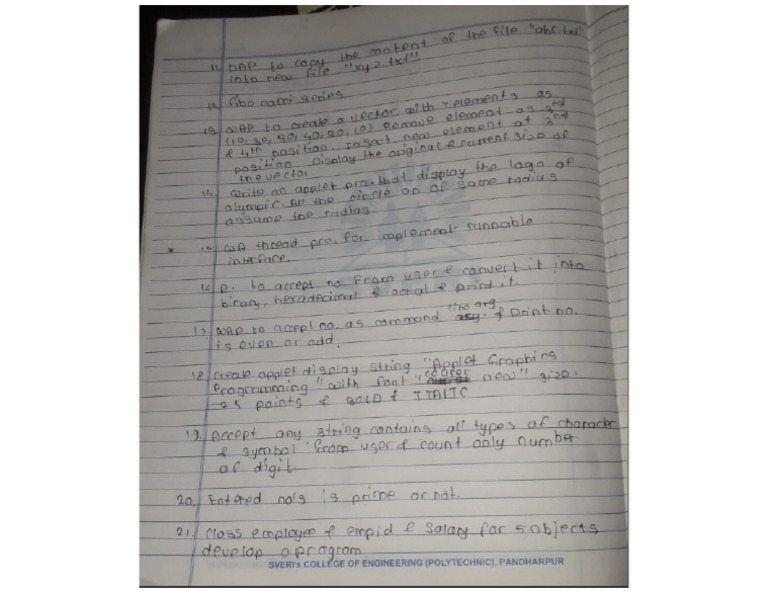 11. WAP to copy the content of the file "abc.txt"
into new file "xyz.txt"
12. fibonanci series
13. WAP to create a vector with 7 elements as
(10, 30, 50, 40, 20, 10) Remove element as 3rd
& 4th position. Insert new element at 3rd
position. Display the original & current size of
the vector.
14. Write an applet pro. that display the logo of
olympic. All the circle an of same radius
assume the radius
* 15. WA thread pro. for implement runnable
interface.
16. P. to accept no. from user & convert it into
binary, hexadecimal & octal & print it.
17. WAP to accept no. as command line arg. & print no.
is even or add.
18. Create applet display string "Applet Graphics
Programming" with font "courer new" size
25 points & BOLD & ITALIC
19. Accept any string contains all types of character
& symbol from user & count only number
of digit
20. Entered no's is prime or not.
21. Class employee & empid & salary for 5 objects
develop a program.
SVERI's COLLEGE OF ENGINEERING (POLYTECHNIC), PANDHARPUR